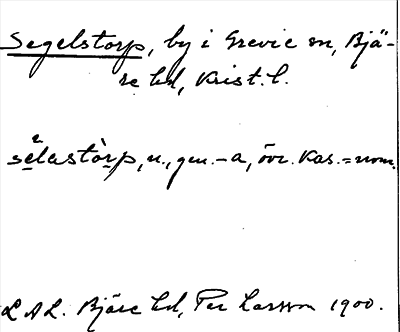 Segelstorp, by i Grevie sn, Bjä-
re hd, Krist. l.
sèlastòrp, n., gen. -a, övr. kas. = nom.
LAL. Bjäre hd, Per Larsson 1900.